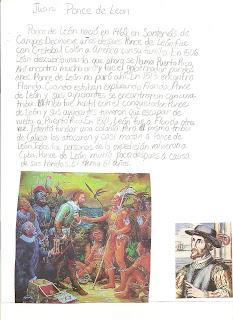 Juan Ponce de León
Ponce de León nació en 1460 en Santervás de
Campos. Decinueve años después Ponce de León fue
con Cristobal Colón a América con su familia. En 1506
León descubrió que ahora se llama Puerto Rica.
Ahí encontro mucho oro y fue el governador por dos
anos. Ponce de León no paró ahí. En 1513 encontro
Florida. Cuando estaban explorando Florida, Ponce
de León y sus ayudantes se encontraron con una
tribu. La tribu fue hostil con el conquistador. Ponce
de León y sus ayudantes tuvieron que escapar de
vuelta a Puerto Rica. En 1521, León fue a Florida otra
vez. Intento fundar una colonia. Pero la misma tribu
de Calusa los atacaron y casi mataron a Ponce de
León. Todas las personas de la expedición volvieron a
Cuba. Ponce de León murió poco después a causa
de sus heridas. El tenia 61 años.